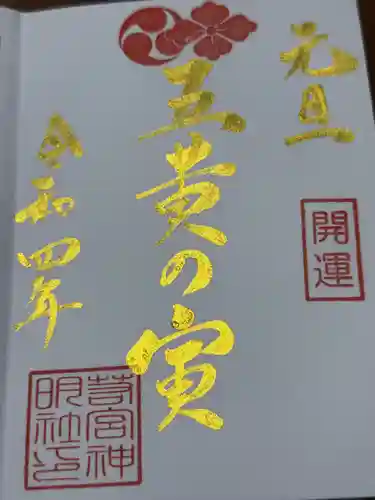 元旦
開運
五黄の寅
令和四年
若宮神
明社印